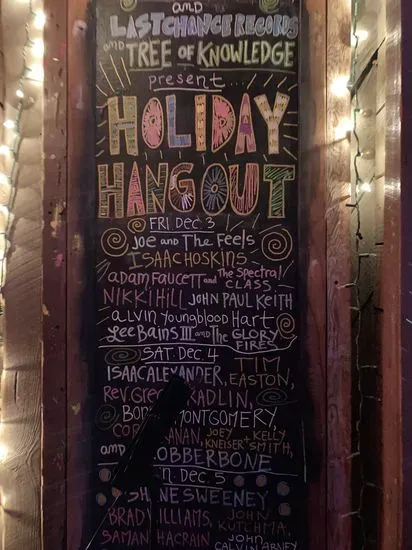 and
LAST CHANCE RECORDS
and TREE OF KNOWLEDGE
present...
HOLIDAY
HANGOUT
FRI DEC 3
JOE and THE FEELS
ISAAC HOSKINS
adam Faucett and The Spectral
CLASS
NIKKI HILL JOHN PAUL KEITH
alvin Youngblood Hart
Lee Bains III and The GLORY
FIRES
SAT. Dec. 4
ISAAC ALEXANDER, TIM
EASTON,
Rev. Greg
MONTGOMERY,
JOEY
KNEISER + KELLY
SMITH,
and
Dec. 5
SHANE SWEENEY
JOHN
KUTCHMA
JOHN
CALVIN ABNEY